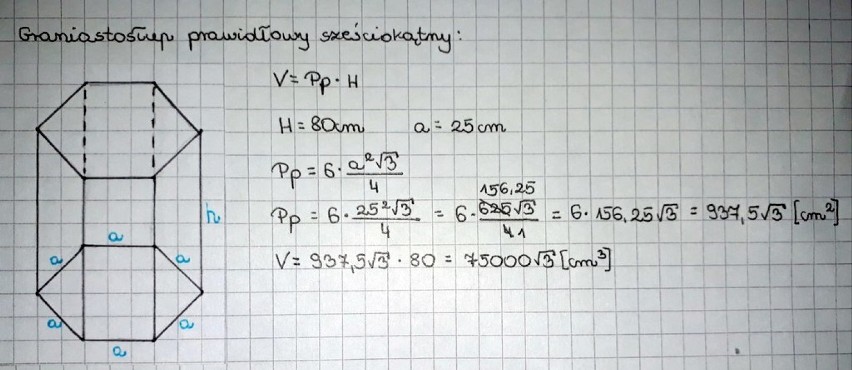 Graniastosłup prawidłowy sześciokątny:
V = Pp · H
H = 80cm a = 25cm
Pp = 6 · a²√3 / 4
Pp = 6 · 25²√3 / 4 = 6 · 625√3 / 4 156,25 1 = 6 · 156,25√3 = 937,5√3 [cm²]
V = 937,5√3 · 80 = 75000√3 [cm³]
h
a
a a
a a
a